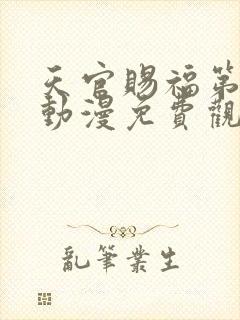 天官賜福第
動漫免費觀
亂筆業生